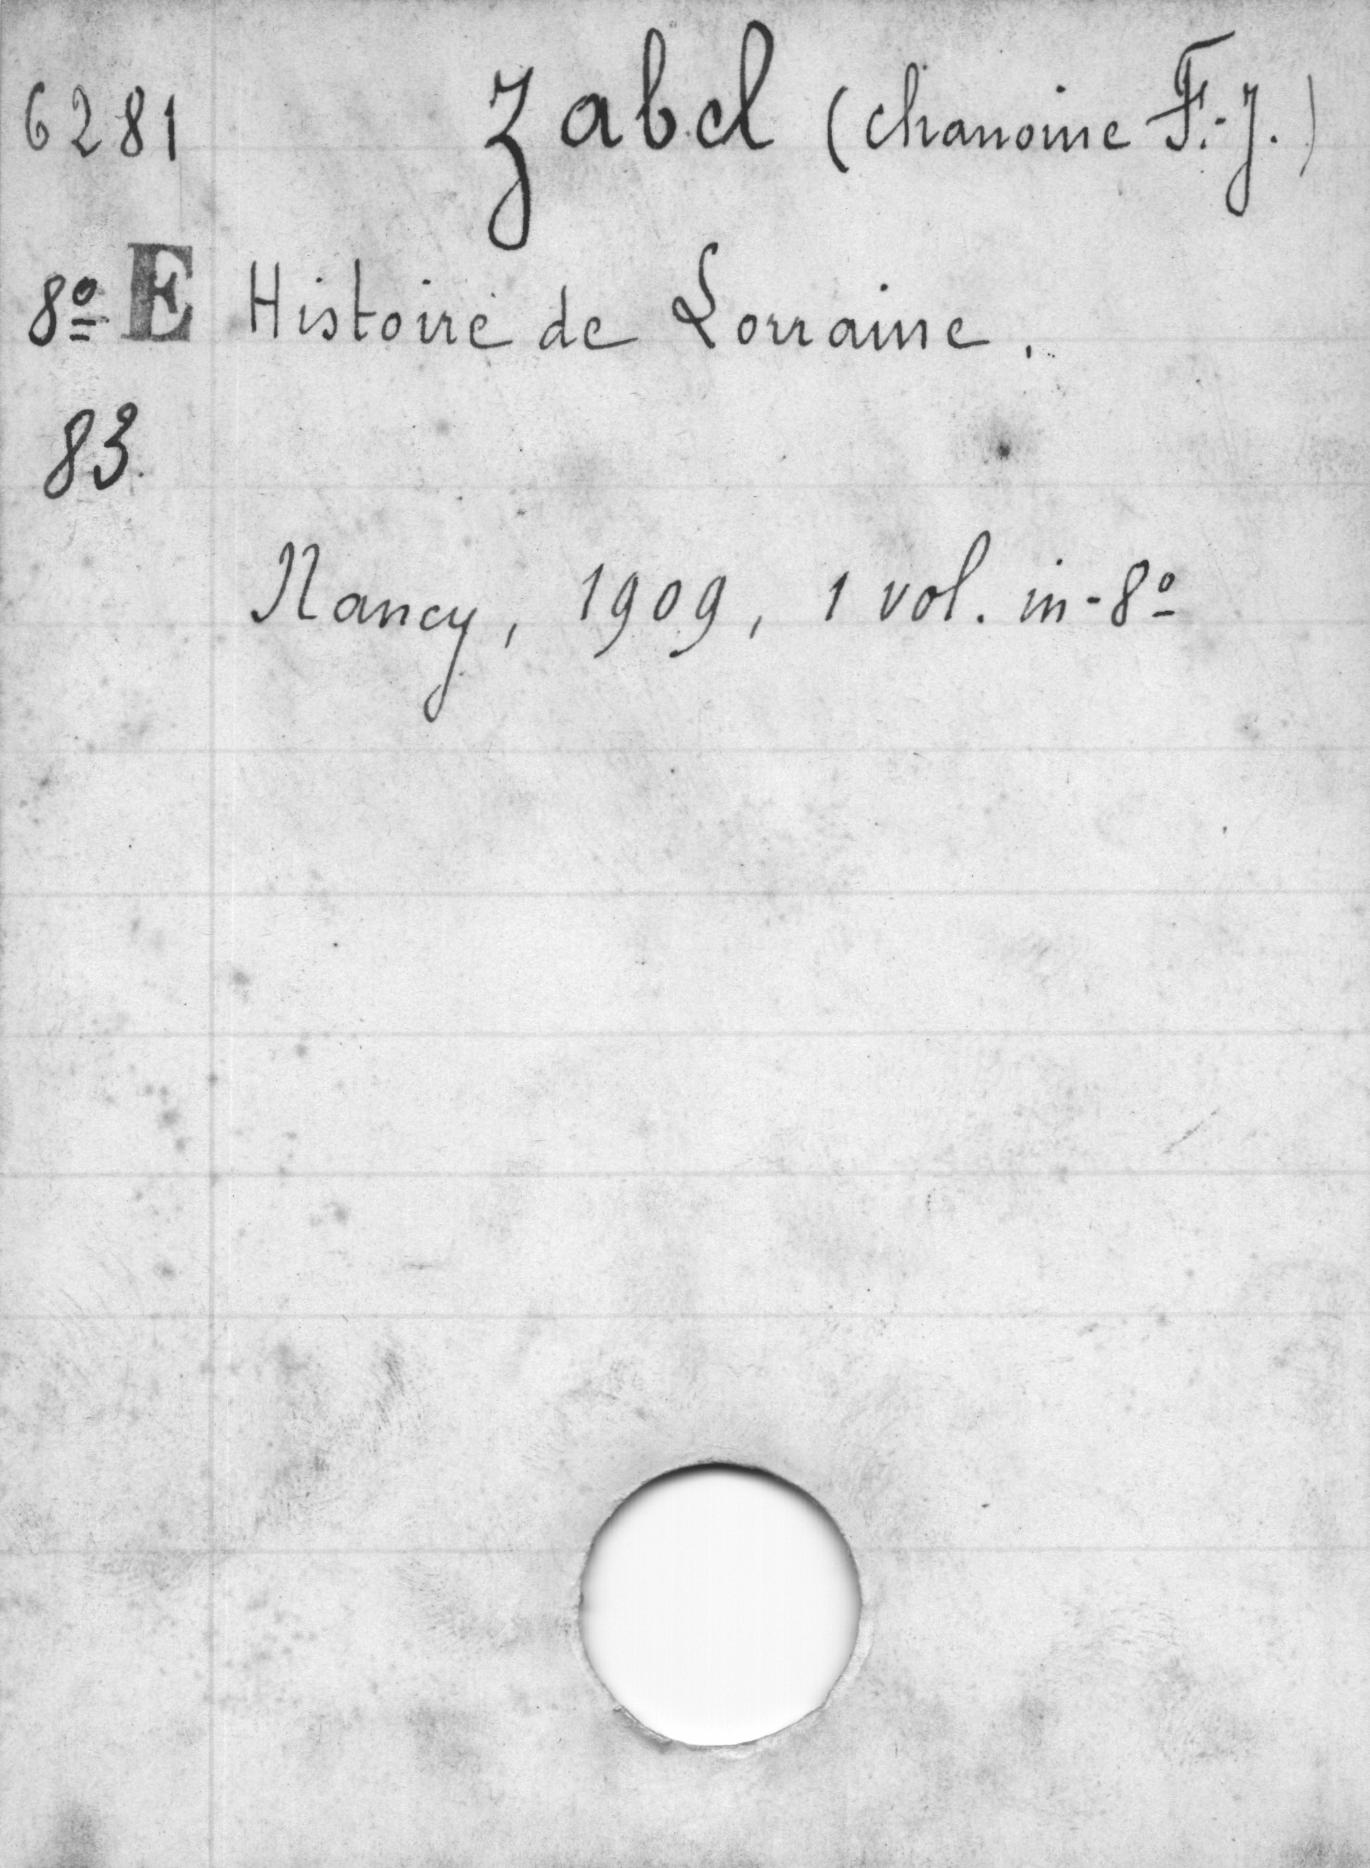 6281 Zabel (chanoine F.-J.)
8º E Histoire de Lorraine.
83
Nancy, 1909, 1 vol. in-8º